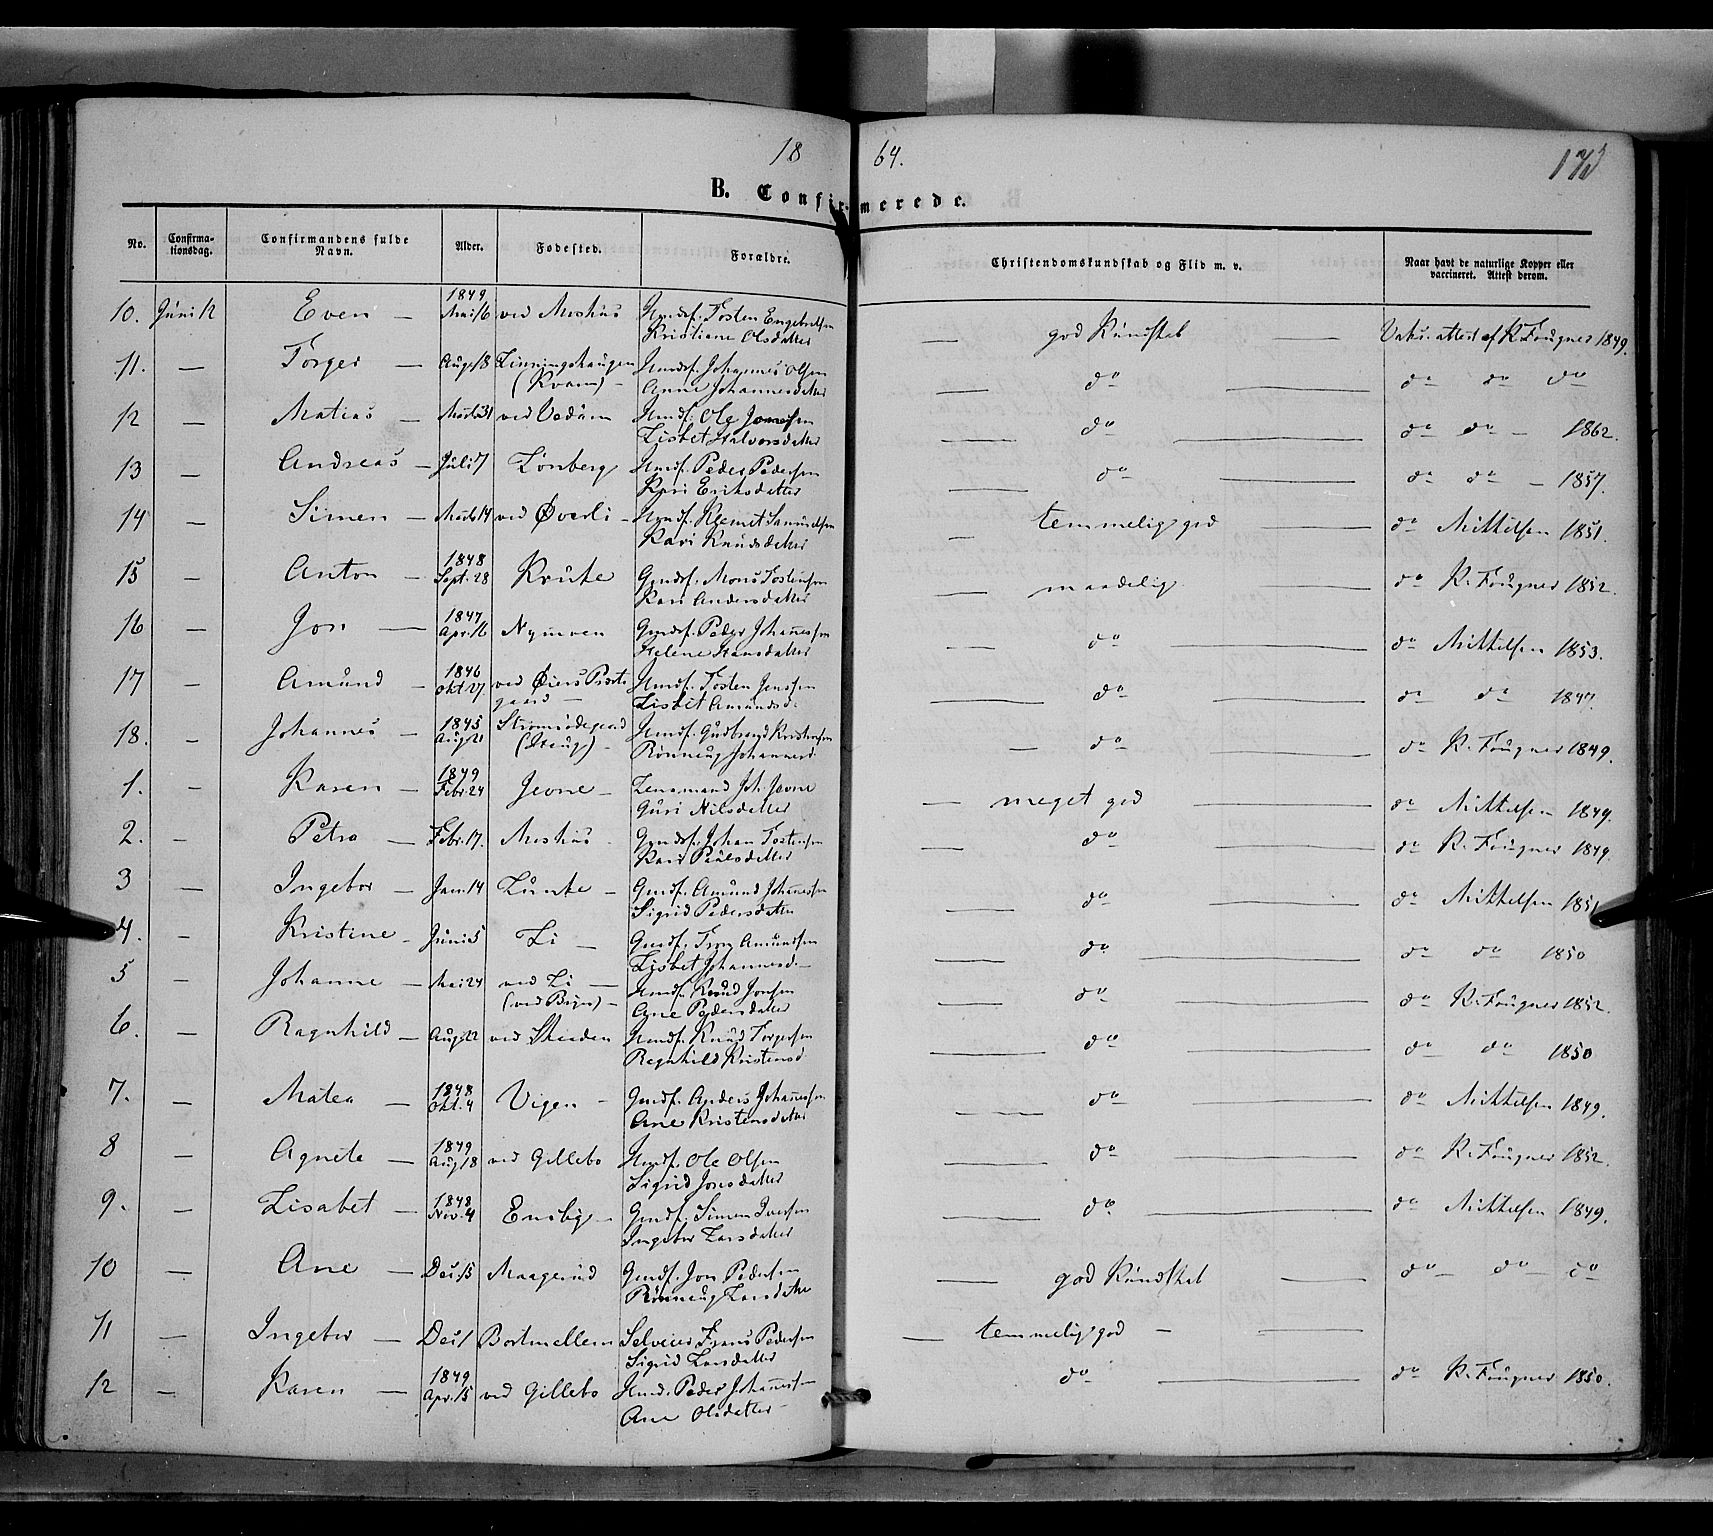 18 64.
173
B. Confirmerede.
No. Confirma-tionsdag. Confirmandens fulde Navn. Alder. Fødested. Forældre. Christendomskundskab og Flid m. v. Naar havt de naturlige Kopper eller vaccineret. Attest derom.
10. Juni 12 Even — 1849 Mai 16 ved Moshus Hmdsf. Tosten Engebretsen Kristiane Olsdatter — god Kundskab — Vaks. attest af K. Fougner 1849.
11. — Torger — Aug. 18 Linningshaugen (Kvam) — Hmdsf. Johannes Olsen Anne Johannesdatter — do — do do do
12 — Matias — Marts 31 ved Hmdf. Ole Lisbet Halvorsdatter — do — do do — 1862.
13 — Andreas — Juli 7 Lønberg Hmdf. Peder Pedersen Kari Eriksdatter — do — do do — 1857.
14 — Simen — Marts 14 ved Øverli — Hmdf. Klemet Kari Knudsdatter — temmelig god — do Mikkelsen 1851.
15 — Anton — 1848 Sept. 28 Krute Gmdsf. Mons Tostensen Kari Andersdatter — maadelig — do K. Fougner 1852.
16 — Jon — 1847 Apr. 16 Gmdsf. Peder Johannessen Helene Hansdatter — do — do Mikkelsen 1853.
17 — Amund — 1846 Okt. 27 ved Øiers Præstegaard — Hmdsf. Tosten Jenssen Lisbet Amundsd. — do — do do 1847.
18. — Johannes — 1845 Aug. 21 Hmdsf. Gudbrand Kristensen Rønnaug Johannesd. — do — do K. Fougner 1849.
1. — Karen — 1849 Febr. 24 Jevne — Lensmand Joh. Jevne Guri Nilsdatter — meget god — do Mikkelsen 1849.
2. — Petra — Febr. 17. Moshus Gmdsf. Johan Tostensen Kari Paulsdatter — do — do K. Fougner 1849.
3 — Ingebor — Jan. 14 Lunke — Gmdsf. Amund Johannessen Sigrid Pedersdatter — do — do Mikkelsen 1851
4. — Kristine — Juni 5 Li — Gmdf. Amundsen Lisbet Johannesd. — do — do do 1850
5 — Johanne — Mai 24 ved Li — (ved Bryn) — Hmdsf. Knud Jonsen Ane Pedersdatter — do — do K. Fougner 1852.
6. — Ragnhild — Aug. 22 ved Skaaden Hmdsf. Knud Torgersen Ragnhild Kristensd. — do — do do 1850
7. — Matea — 1848 Okt. 4 Vigen — Gmdf. Anders Johannessen Ane Kristensdatter — do — do Mikkelsen 1849.
8 — Agnete — 1849 Aug. 18 ved Gillebo Hmdf. Ole Olsen Sigrid Jonsdatter — do — do K. Fougner 1852.
9. — Lisabet — 1848 Nov. 4 Ensby — Gmdf. Simen Iversen Ingebor Larsdatter — do — do Mikkelsen 1849.
10 — Ane — Des. 15 Maagerud Gmdf. Jon Pedersen Rønnaug Larsdatter — god Kundskab — do — do — do
11 — Ingebor — Des. 1 Bortmellem Selveier Frans Pedersen Sigrid Larsdatter — temmelig god —
12 — Karen — 1849 Apr. 15 ved Gillebo Hmd. Peder Johannessen Ane Olsdatter — do — do K. Fougner 1850.